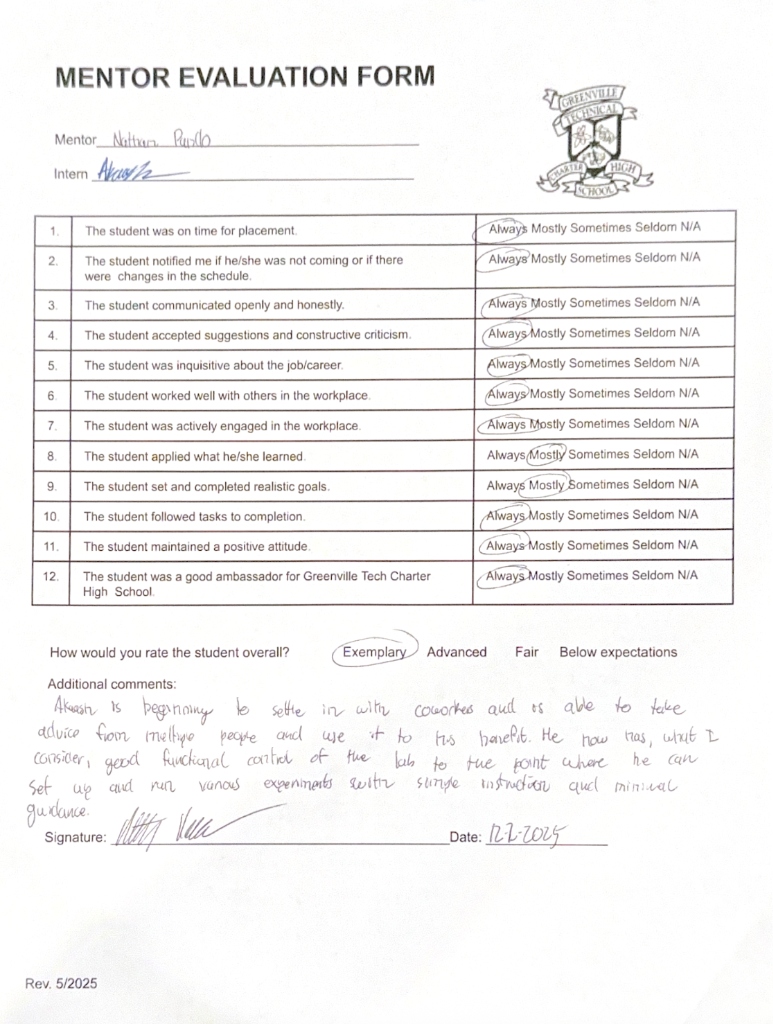 MENTOR EVALUATION FORM
GREENVILLE
TECHNICAL
CHARTER HIGH
SCHOOL
Mentor Nathan
Intern Akaash
1. The student was on time for placement. Always Mostly Sometimes Seldom N/A
2. The student notified me if he/she was not coming or if there Always Mostly Sometimes Seldom N/A
were changes in the schedule.
3. The student communicated openly and honestly. Always Mostly Sometimes Seldom N/A
4. The student accepted suggestions and constructive criticism. Always Mostly Sometimes Seldom N/A
5. The student was inquisitive about the job/career. Always Mostly Sometimes Seldom N/A
6. The student worked well with others in the workplace. Always Mostly Sometimes Seldom N/A
7. The student was actively engaged in the workplace. Always Mostly Sometimes Seldom N/A
8. The student applied what he/she learned. Always Mostly Sometimes Seldom N/A
9. The student set and completed realistic goals. Always Mostly Sometimes Seldom N/A
10. The student followed tasks to completion. Always Mostly Sometimes Seldom N/A
11. The student maintained a positive attitude. Always Mostly Sometimes Seldom N/A
12. The student was a good ambassador for Greenville Tech Charter Always Mostly Sometimes Seldom N/A
High School.
How would you rate the student overall? Exemplary Advanced Fair Below expectations
Additional comments:
Akaash is beginning to settle in with coworkers and is able to take
advice from multiple people and use it to his benefit. He now has, what I
consider, good functional control of the lab to the point where he can
set up and run various experiments with simple instruction and minimal
guidance.
Signature: Date: 12-2-2025
Rev. 5/2025